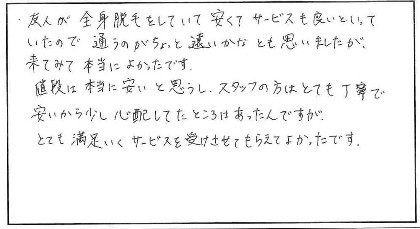 ・友人が全身脱毛をしていて安くてサービスも良いといって
いたので通うのがちょっと遠いかなとも思いましたが、
来てみて本当によかったです。
値段は本当に安いと思うし、スタッフの方はとても丁寧で
安いから少し心配してたところはあったんですが、
とても満足いくサービスを受けさせてもらえてよかったです。